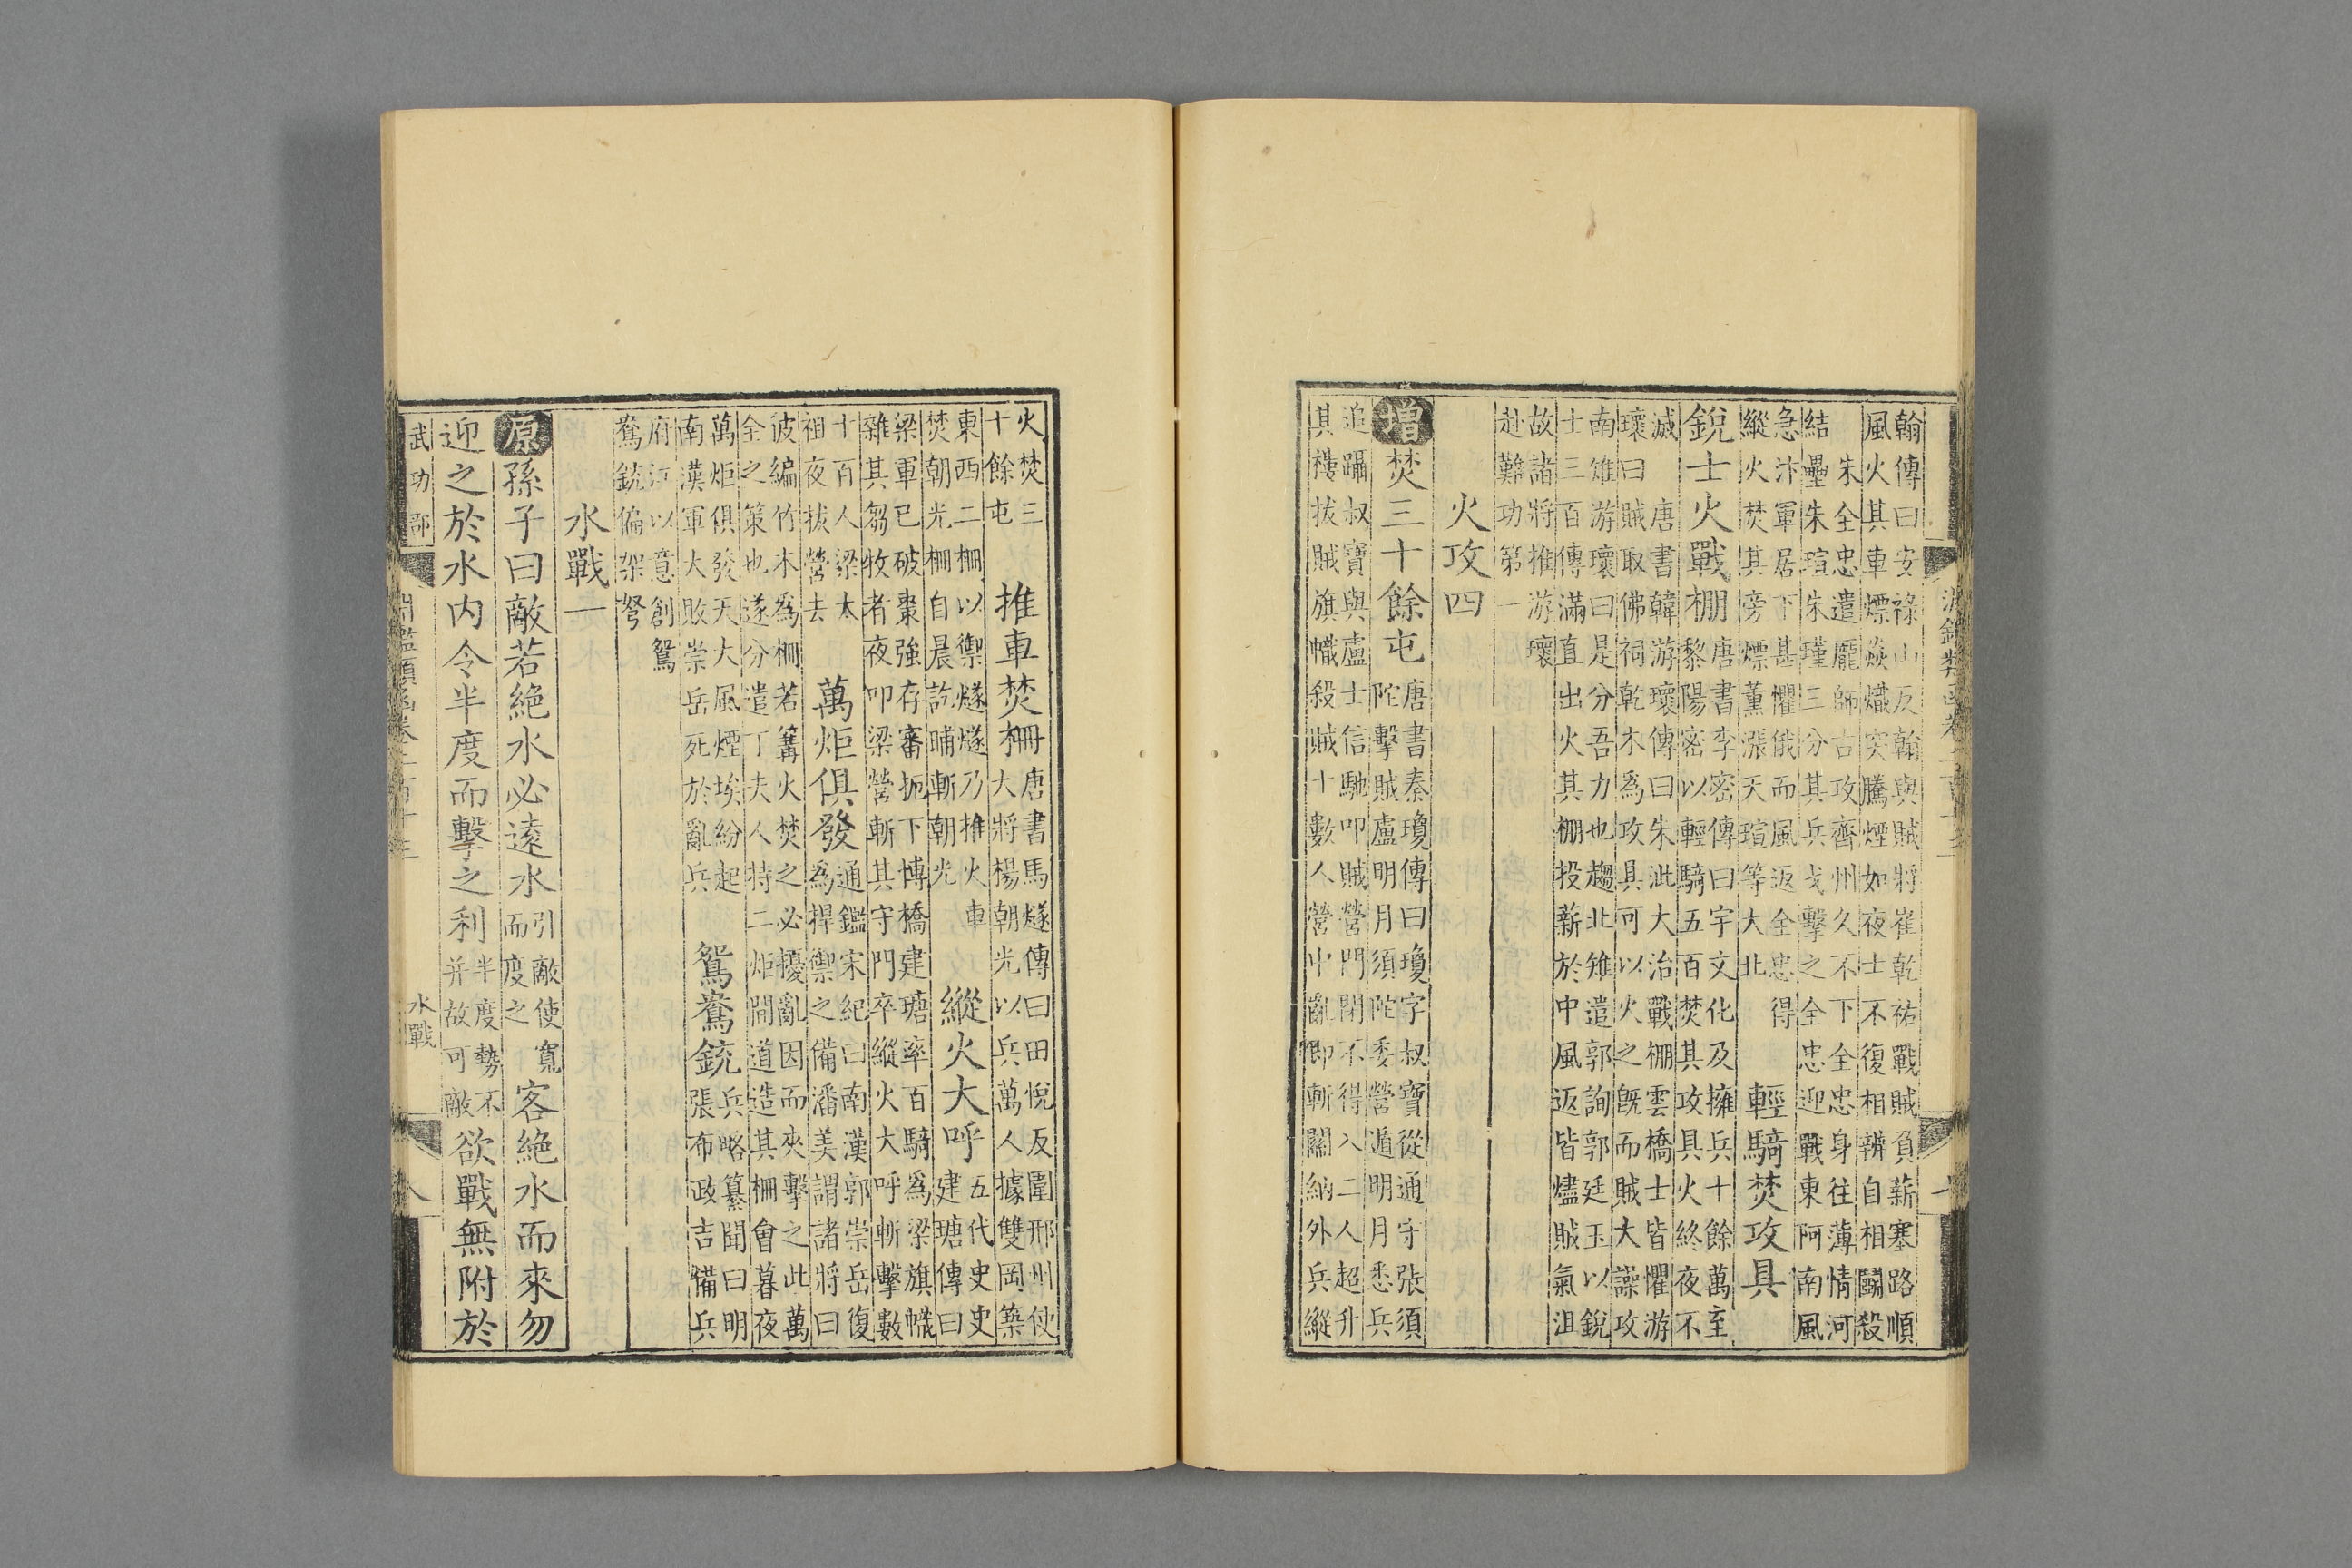 翰傳曰安祿山反翰與賊將崔乾祐戰賊負薪塞路順
風火其車熛焱熾突騰煙如夜士不復相辨自相鬭殺
朱全忠遣龐師古攻齊州久不下全忠身往薄情河
結壘朱瑄朱瑾三分其兵戈擊之全忠迎戰東阿南風
急汴軍居下甚懼俄而風返全忠得
縱火焚其旁熛薰漲天瑄等大北
輕騎焚攻具
銳士火戰棚
唐書李密傳曰宇文化及擁兵十餘萬至
黎陽密以輕騎五百焚其攻具火終夜不
滅 唐書韓游瓌傳曰朱泚大治戰棚雲橋士皆懼游
瓌曰賊取佛祠乾木為攻具可以火之旣而賊大譟攻
南雉游瓌曰是分吾力也趨北雉遣郭詢郭廷玉以銳
士三百傳滿直出火其棚投薪於中風返皆燼賊氣沮
故諸將推游瓌
赴難功第一
火攻四
增焚三十餘屯
唐書秦瓊傳曰瓊字叔寶從通守張須
陀擊賊盧明月須陀委營遁明月悉兵
追躡叔寶與盧士信馳叩賊營門閉不得入二人超升
其樓拔賊旗幟殺賊十數人營中亂即斬關納外兵縱
火焚三
十餘屯
推車焚柵
唐書馬燧傳曰田悅反圍邢州使
大將楊朝光以兵萬人據雙岡築
東西二柵以禦燧燧乃推火車
焚朝光柵自晨訖晡斬朝光
縱火大呼
五代史史
建瑭傳曰
梁軍已破棗強存審扼下博橋建瑭率百騎為梁旗幟
雜其芻牧者夜叩梁營斬其守門卒縱火大呼斬擊數
十百人梁太
祖夜拔營去
萬炬俱發
通鑑宋紀曰南漢郭崇岳復
為捍禦之備潘美謂諸將曰
彼編竹木為柵若篝火焚之必擾亂因而夾擊之此萬
全之策也遂分遣丁夫人持二炬間道造其柵會暮夜
萬炬俱發天大風煙埃紛起
南漢軍大敗崇岳死於亂兵
鴛鴦銃
兵略纂聞曰明
張布政吉備兵
府江以意創鴛
鴦銃偏架弩
水戰一
原孫子曰敵若絶水必遠水
引敵使寬
而度之
客絶水而來勿
迎之於水内令半度而擊之利
半度勢不
并故可敵
欲戰無附於
武功部
淵鑑類函卷二百十三
水戰
八